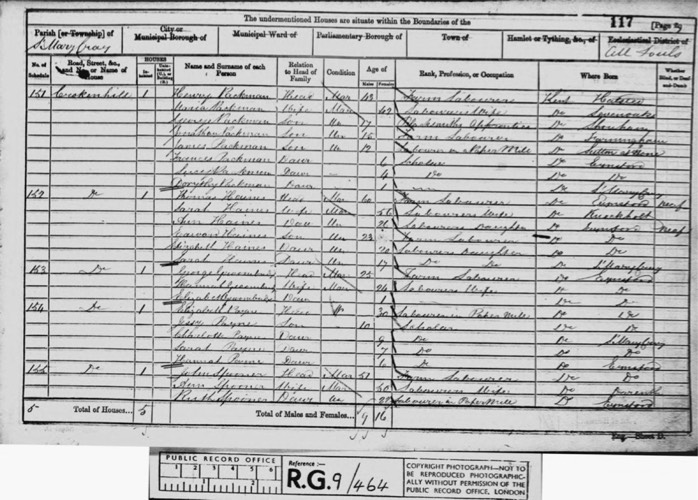 The undermentioned Houses are situate within the Boundaries of the
117 [Page 27
Parish [or Township] of
St Mary Cray
City or Municipal Borough of
Municipal Ward of
Parliamentary Borough of
Town of
Hamlet or Tything, &c., of
Ecclesiastical District of
All Souls
No. of Schedule
Road, Street, &c., and No. or Name of House
HOUSES
Name and Surname of each Person
Relation to Head of Family
Condition
Age of
Males Females
Rank, Profession, or Occupation
Where Born
Whether Blind, or Deaf-and-Dumb
151 Crockenhill 1 Henry Packman Head Mar 43 Farm Labourer Kent
Maria Packman Wife Mar 42 Labourers Wife Do Sevenoaks
George Packman Son Un 17 Apprentice Do Shoreham
Jonathan Packman Son Un 15 Farm Labourer Do Farningham
James Packman Son Un 12 Labourer in Paper Mill Do Sutton at Hone
Frances Packman Daur 6 Scholar Do Eynsford
Daur 4 Do Do Do
Dorothy Packman Daur 1 Do St Mary Cray
152 Do 1 Thomas Haines Head Mar 60 Farm Labourer Do Eynsford Deaf
Sarah Haines Wife Mar 56 Labourers Wife Do Knockholt
Ann Haines Daur Un Labourers Daughter Do Eynsford Deaf
Haines Son Un 23 Farm Labourer Do Do
Elizabeth Haines Daur Un 20 Labourers Daughter Do Do
Sarah Haines Daur Un 17 Do Do Do St Mary Cray
153 Do 1 George Head Mar 25 Farm Labourer Do Eynsford
Hannah Wife Mar 24 Labourers Wife Do Do
Elizabeth Daur 1 Do Do
154 Do 1 Elizabeth Payne Head W 30 Labourer in Paper Mill Do Do
Jesse Payne Son 10 Scholar Do Do
Charlotte Payne Daur 9 Do Do St Mary Cray
Sarah Payne Daur 7 Do Do Do
Hannah Payne Daur 6 Do Do Eynsford
155 Do 1 John Spooner Head Mar 51 Farm Labourer Do Do
Ann Spooner Wife Mar 50 Labourers Wife Do
Ruth Spooner Daur Un 21 Labourer in Paper Mill Do Eynsford
5 Total of Houses... 5 Total of Males and Females... 9 16
Eng.—Sheet D.
PUBLIC RECORD OFFICE
1 2 3 4 5 6
Reference :-
R.G.9/464
COPYRIGHT PHOTOGRAPH—NOT TO
BE REPRODUCED PHOTOGRAPHIC-
ALLY WITHOUT PERMISSION OF THE
PUBLIC RECORD OFFICE, LONDON